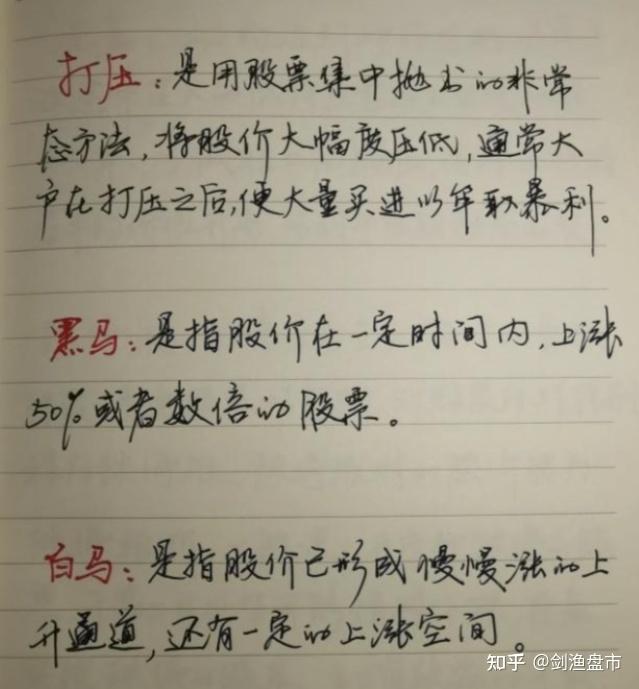 打压：是用股票集中抛出的非常
态方法，将股价大幅度压低，通常大
户在打压之后，便大量买进以牟取暴利。
黑马：是指股价在一定时间内，上涨
50%或者数倍的股票。
白马：是指股价已形成慢慢涨的上
升通道，还有一定的上涨空间。
知乎 @剑渔盘市